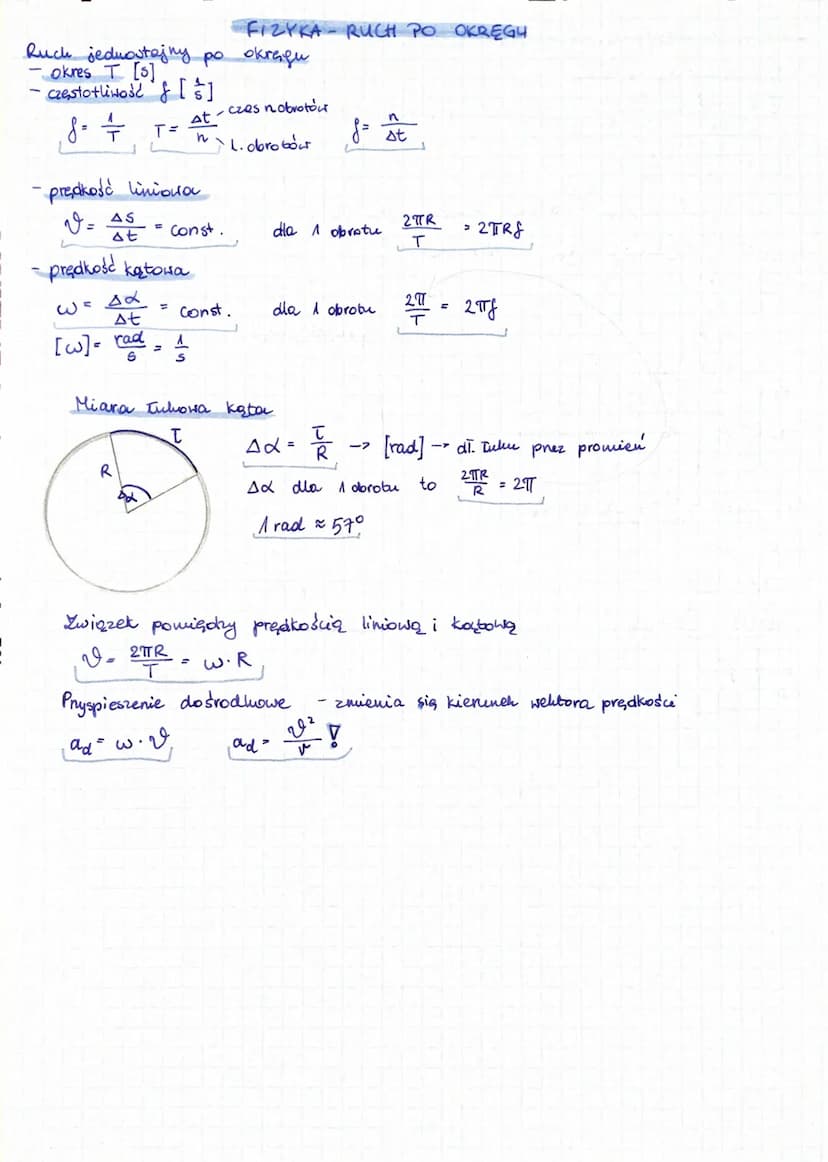 FIZYKA - RUCH PO OKRĘGU
Ruch jednostajny po okręgu
- okres T [s]
- częstotliwość f [1/s]
f = 1/T T = Δt/n czas n obrotów l. obrotów f = n/Δt
- prędkość liniowa
v = ΔS/Δt = const. dla 1 obrotu 2πR/T = 2πRf
- prędkość kątowa
ω = Δα/Δt = const. dla 1 obrotu 2π/T = 2πf
[ω] = rad/s = 1/s
Miara łukowa kąta
Ł
R
Δα
Δα = Ł/R -> [rad] -> dł. łuku przez promień
Δα dla 1 obrotu to 2πR/R = 2π
1 rad ≈ 57°
Związek pomiędzy prędkością liniową i kątową
v = 2πR/T = ω · R
Przyspieszenie dośrodkowe - zmienia się kierunek wektora prędkości
ad = ω · v ad = v²/r !